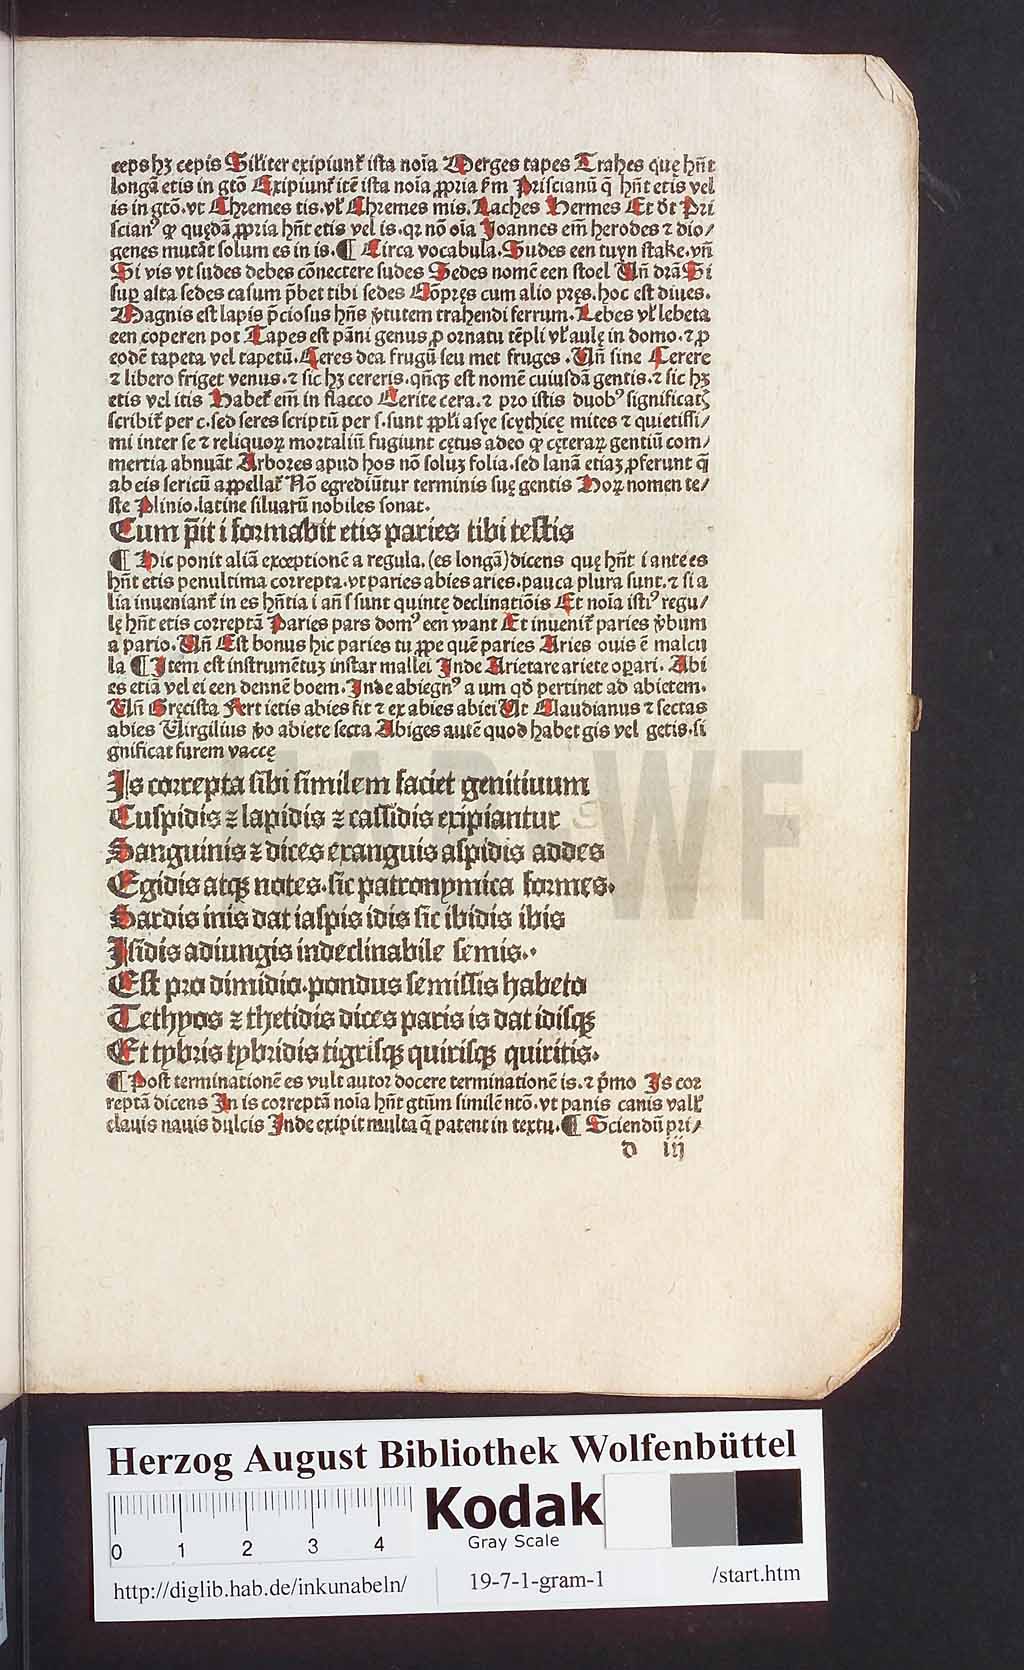 ceps hꝫ cepis Sil'iter exipiunt᷑ ista noīa Merges tapes Trahes quę hn̄t
longā etis in gtō Exipiunt᷑ itē ista noīa ꝓpria ẜm Priscianū q̄ hn̄t etis vel
is in gtō. vt Chremes tis. vl' Chremes mis. Laches Hermes Et dt̄ Pri
scianꝰ ꝙ quędā ꝓpria hn̄t etis vel is. qꝛ nō oīa Joannes em̄ herodes ⁊ dio/
genes mutāt solum es in is. ¶ Circa vocabula. Sudes een tuyn stake. vn̄
Si vis vt sudes debes cōnectere sudes Sedes nomē een stoel Vn̄ dr̄a Si
suꝑ alta sedes casum p̄bet tibi sedes Cōpręs cum alio pręs. hoc est diues.
Magnis est lapis p̄ciosus hn̄s v̓tutem trahendi ferrum. Lebes vl' lebeta
een coperen pot Tapes est pāni genus ꝓ ornatu tēpli vl' aulę in domo. ⁊ ꝓ
eodē tapeta vel tapetū. Ceres dea frugū seu met fruges. Vn̄ sine Cerere
⁊ libero friget venus. ⁊ sic hꝫ cereris. qn̄qꝫ est nomē cuiusdā gentis. ⁊ sic hꝫ
etis vel itis Habet᷑ em̄ in flacco Cerite cera. ⁊ pro istis duobꝰ significatꝭ
scribit᷑ per c. sed seres scriptū per s. sunt ppl'i asye scythicę mites ⁊ quietissi/
mi inter se ⁊ reliquoꝝ mortaliū fugiunt cętus adeo ꝙ cęteraꝝ gentiū com/
mertia abnuāt Arbores apud hos nō soluꝫ folia. sed lanā etiaꝫ ꝓferunt q̄
ab eis sericū appellat᷑ Nō egrediūtur terminis suę gentis Hoꝝ nomen te/
ste Plinio. latine siluarū nobiles sonat.
Cum p̄it i formabit etis paries tibi testis
¶ Hic ponit aliā exceptionē a regula. (es longā) dicens quę hn̄t i ante es
hn̄t etis penultima correpta. vt paries abies aries. pauca plura sunt. ⁊ si a
lia inueniant᷑ in es hn̄tia i an̄ s sunt quintę declinatiōis Et noīa istiꝰ regu/
lę hn̄t etis correptā Paries pars domꝰ een want Et inuenit᷑ paries v̓bum
a pario. Vn̄ Est bonus hic paries tu ꝓpe quē paries Aries ouis ē malcu
la ¶ Item est instrumētuꝫ instar mallei Inde Arietare ariete oꝑari. Abi
es etiā vel ei een dennē boem. Inde abiegnꝰ a um qd̓ pertinet ad abietem.
Vn̄ Gręcista Fert ietis abies fit ⁊ ex abies abiei Vt Claudianus ⁊ sectas
abies Virgilius v̓o abiete secta Abiges autē quod habet gis vel getis. si
gnificat furem vaccę
Is correpta sibi similem faciet genitiuum
Cuspidis ⁊ lapidis ⁊ cassidis exipiantur
Sanguinis ⁊ dices exanguis aspidis addes
Egidis atqꝫ notes. sic patronymica formes.
Sardis inis dat iaspis idis sic ibidis ibis
Isidis adiungis indeclinabile semis.
Est pro dimidio. pondus semissis habeto
Tethyos ⁊ thetidis dices paris is dat idisqꝫ
Et tybris tybridis tigrisqꝫ quirisqꝫ quiritis.
¶ Post terminationē es vult autor docere terminationē is. ⁊ p̓mo Is cor
reptā dicens In is correptā noīa hn̄t gtūm similē ntō. vt panis canis vall'
clauis nauis dulcis Inde exipit multa q̄ patent in textu. ¶ Sciendū pri/
d iij
HAB WF
Herzog August Bibliothek Wolfenbüttel
0 1 2 3 4
Kodak
Gray Scale
http://diglib.hab.de/inkunabeln/ 19-7-1-gram-1 /start.htm